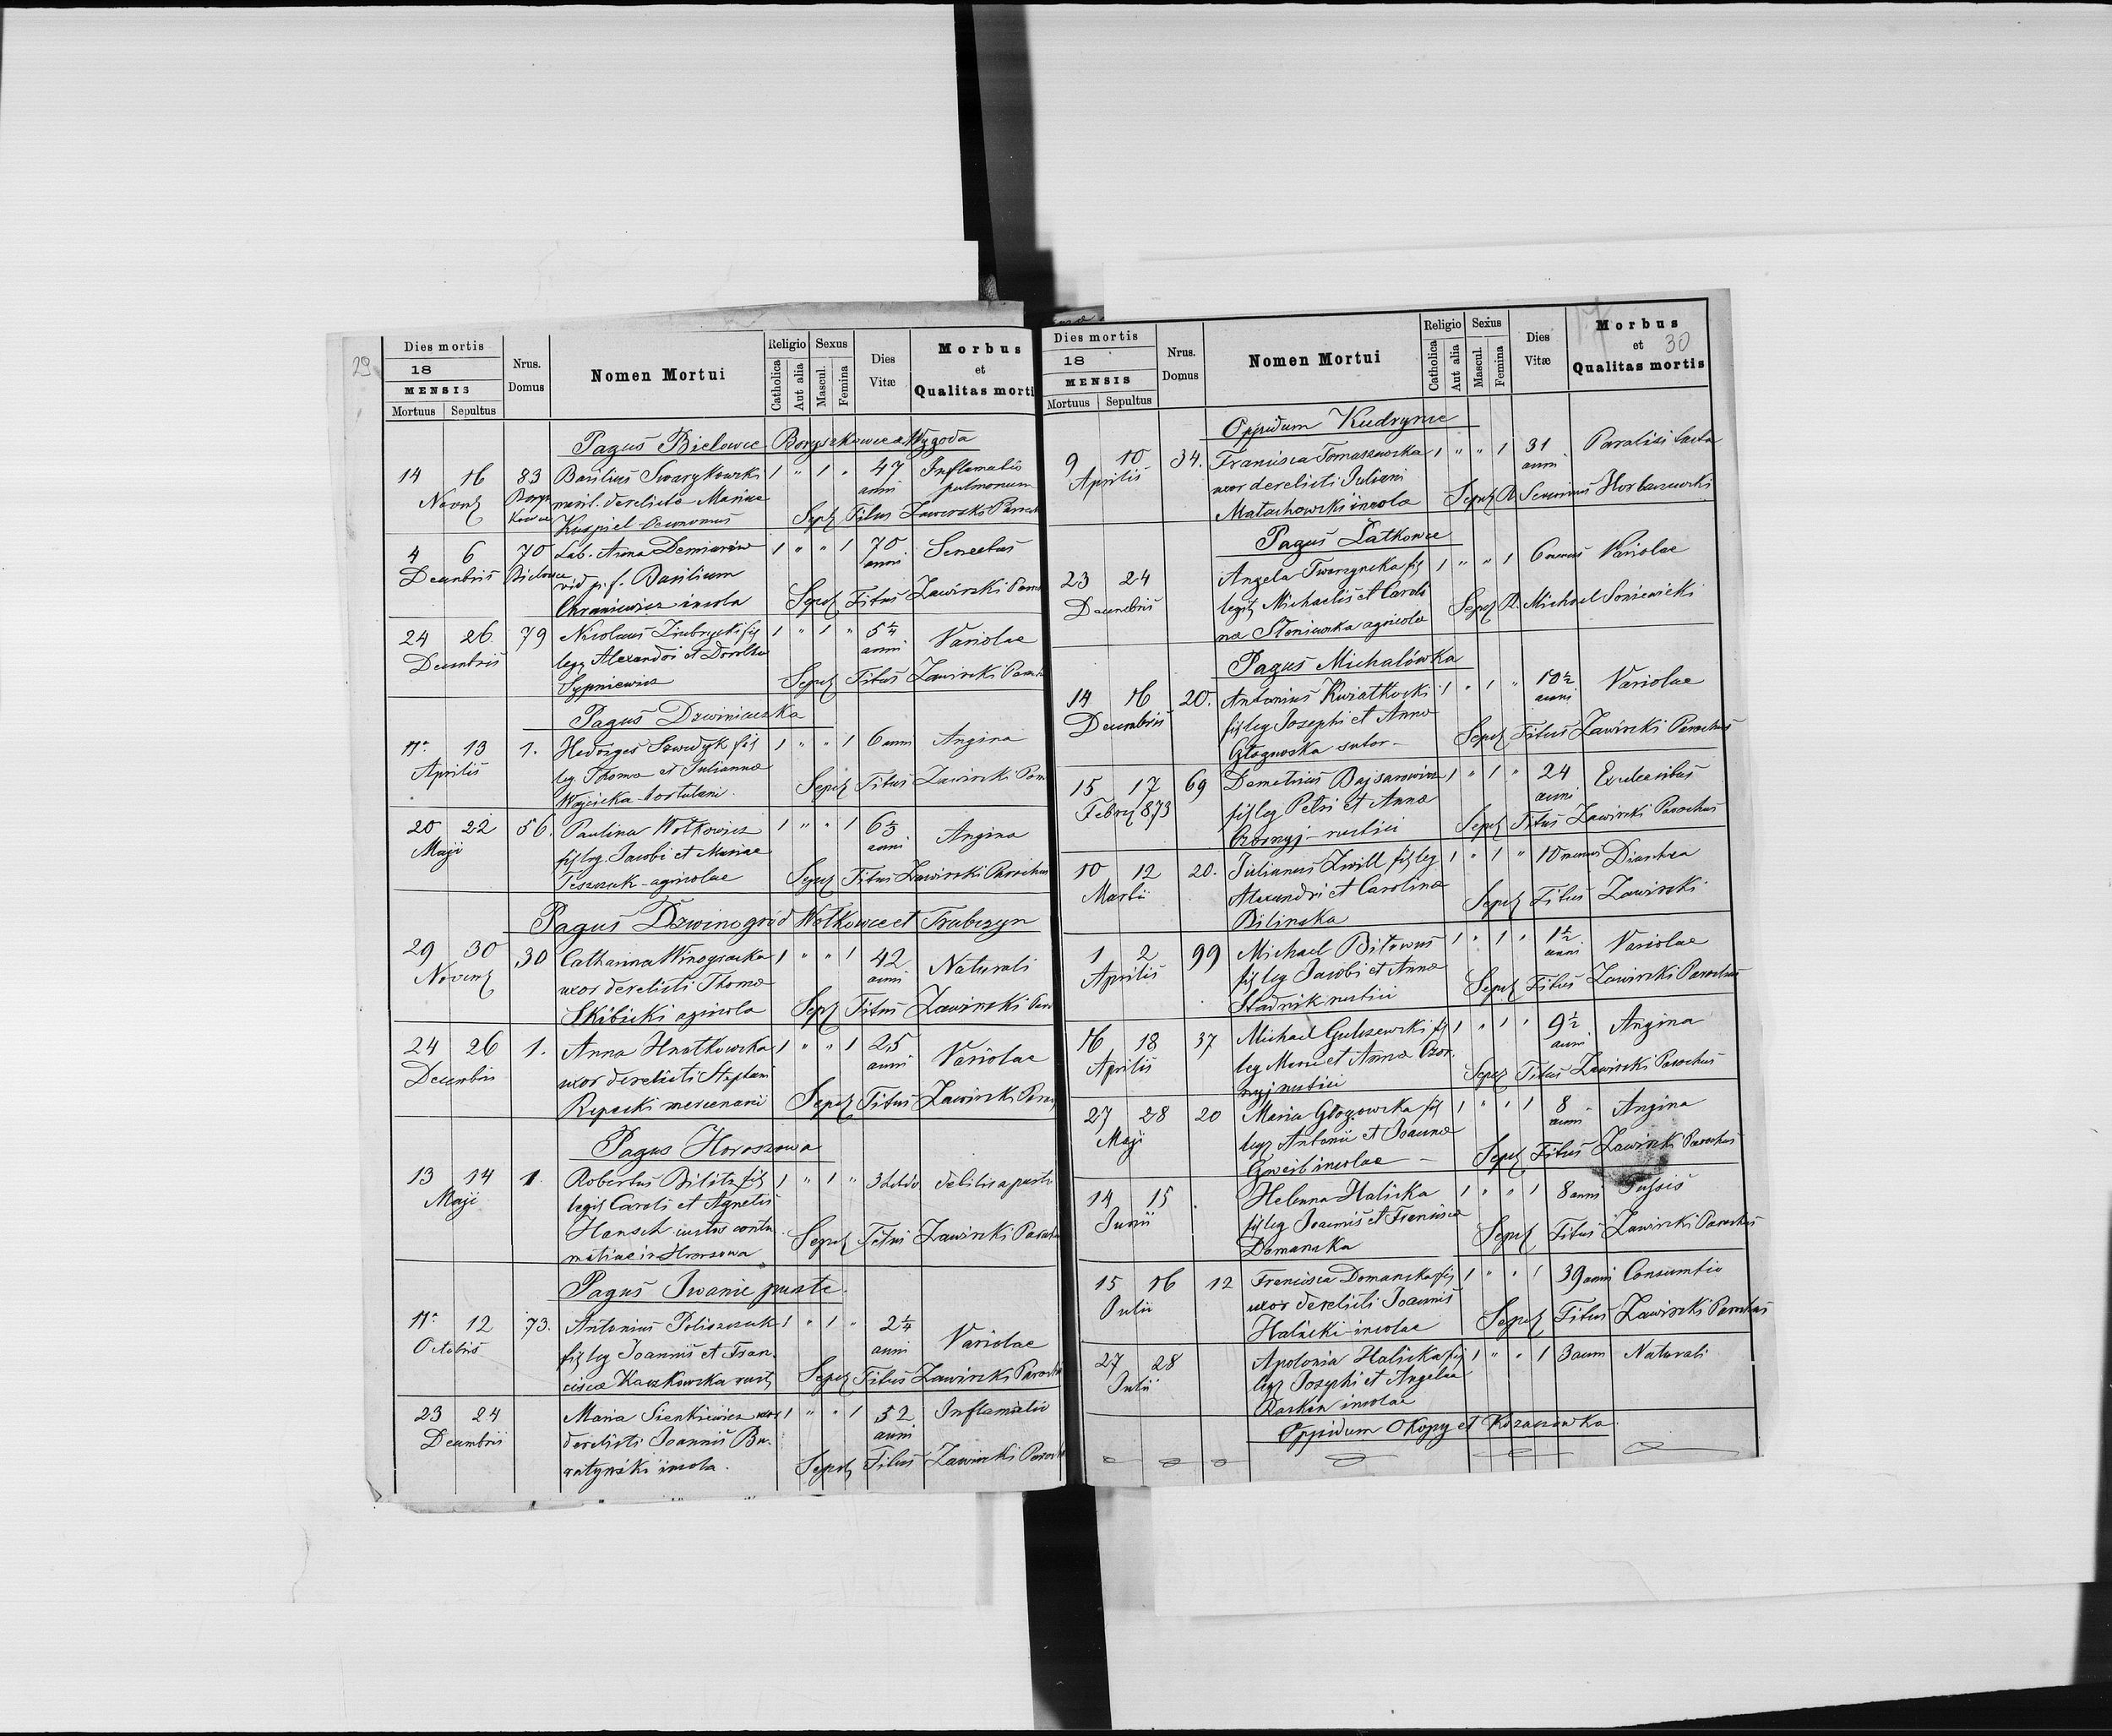 29
Dies mortis
18
MENSIS
Mortuus Sepultus
Nrus.
Domus
Nomen Mortui
Religio
Catholica
Aut alia
Sexus
Mascul.
Femina
Dies
Vitæ
Morbus
et
Qualitas morti
Pagus Bielowce Boryszkowce et Wygoda
14 16 83 Basilius 1 " 1 " 47 Inflamatio
Novem anni pulmonum
marit. derelicta Mariae
Kuspiel Oeconomus Sep Titus Zawirski
4 6 70 Lab. Anna Demianów 1 " " 1 70 Senectus
Decembris Bielowce vid p. f. Basilium anni
Chraniewicz incola Sepel Titus Zawirski
24 26 79 Nicolaus fil 1 " 1 " 5 1/4 Variolae
Decembris leg Alexandri et Dorothea anni
Sypniewicz Sepel Titus Zawirski
Pagus Dzwiniaczka
11 13 1. Hedviges Szwedyk fil 1 " " 1 6 anni Angina
Aprilis leg. Thoma et Julianna
Wojcicka hortulani Sepel Titus Zawirski
20 22 56. Paulina Wolkowicz 1 " " 1 6 anni Angina
Maji fil leg. Jacobi et Mariae
Teszczuk - agricolae Sepel Titus Zawirski Parochus
Pagus Dzwinogród Wolkowce et Trubczyn
29 30 30 Catharina Winogradzka 1 " " 1 42 Naturali
Novem uxor derelicti Thoma anni
Skibicki agricola Sep Titus Zawirski
24 26 1. Anna Hnatkowska 1 " " 1 25 Variolae
Decembris uxor derelicti Stephani anni
Repecki mercenarii Sepel Titus Zawirski
Pagus Horoszowa
13 14 1. Robertus Bilitz fil 1 " 1 " debilis a partu
Maji legit Caroli et Agnetis
Hansch custos contu
matiae in Horoszowa Sepel Titus Zawirski
Pagus Iwanie puste
11 12 73. Antonius Poliszczuk 1 " 1 " 2 1/4 Variolae
Octobris fil leg Joannis et Fran- anni
cisca Kaczkowska rust Sepel Titus Zawirski
23 24 Maria Sienkiewicz uxor 1 " " 1 52 Inflamatio
Decembris derelicti Joannis Bu- anni
ratyński incola. Sepel Titus Zawirski
Dies mortis
18
MENSIS
Mortuus Sepultus
Nrus.
Domus
Nomen Mortui
Religio
Catholica
Aut alia
Sexus
Mascul.
Femina
Dies
Vitæ
Morbus
et 30
Qualitas mortis
Oppidum Kudrynce
9 10 34. Francisca Tomaszewska 1 " " 1 31 Paralisi tacta
Aprilis uxor derelicti Juliani anni
Małachowski incola Sepel R. Severinus Horbaszewski
Pagus Latkowce
23 24 Angela Twarzynska fil 1 " " 1 6 Variolae
Decembris legit Michaelis et Caroli
nae Słoniewska agricolae Sepel R. Michael
Pagus Michalówka
14 16 20. Antonius Kwiatkoski 1 " 1 " 10 1/2 Variolae
Decembris fil leg Josephi et Anna anni
Głogowska sutor - Sepel Titus Zawirski Parochus
15 17 69 Demetrius Bajsarowicz 1 " 1 " 24
Febru 873 fil leg Petri et Anna anni
Czornyj - rustici Sepel Titus Zawirski Parochus
10 12 20. Julianus Zwill fil leg 1 " 1 " 10 menses Diarhea
Martii Alexandri et Carolina
Bilinska Sepel Titus Zawirski
1 2 99 Michael Biłowus 1 " 1 " 1 1/2 Variolae
Aprilis fil leg Jacobi et Anna anni
Stadnik rustici Sepel Titus Zawirski Parochus
16 18 37 Michael fil 1 " 1 " 9 1/2 Angina
Aprilis leg et Anna Czor- anni
nyj rustici Sepel Titus Zawirski Parochus
27 28 20 Maria Głogowska fil 1 " " 1 8 Angina
Maji leg Antonii et Joanna anni
incolae - Sepel Titus Zawirski Parochus
14 15 Helenna Halicka 1 " " 1 8 anni Tussis
Junii fil leg Joannis et Francisca
Domanska Sepel Titus Zawirski Parochus
15 16 12 Francisca Domanska fil 1 " " 1 39 anni Consumtio
Julii uxor derelicti Joannis
Halicki incolae Sepel Titus Zawirski Parochus
27 28 Apolonia Halicka fil 1 " " 1 3 anni Naturali
Julii leg Josephi et Angela
incolae
Oppidum Okopy et Kozaczówka